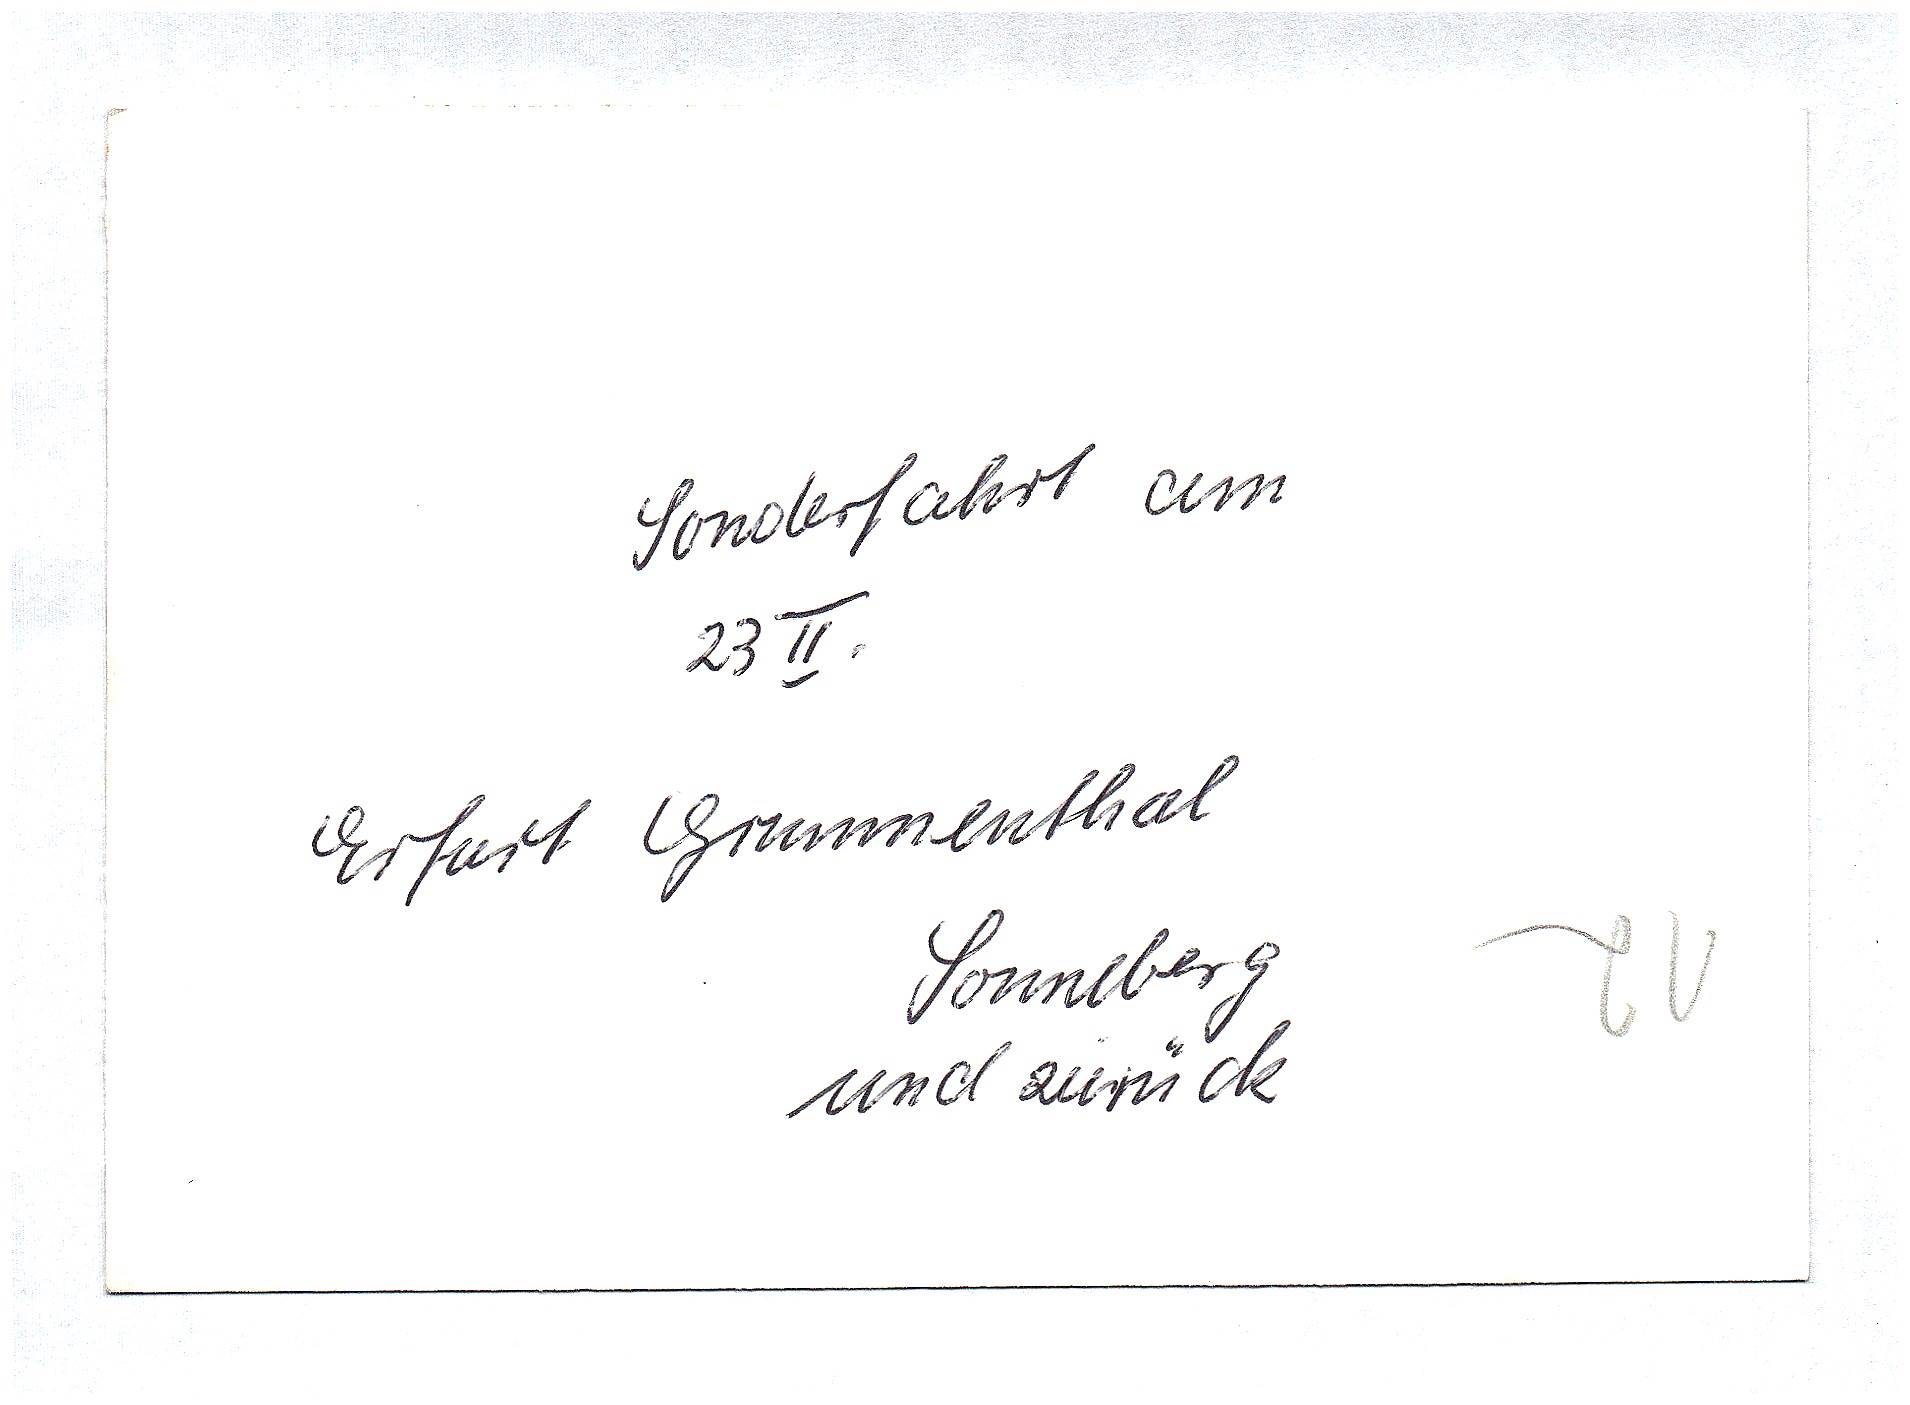 Sonderfahrt am
23 II.
Erfurt Grimmenthal
Sonneberg
und zurück